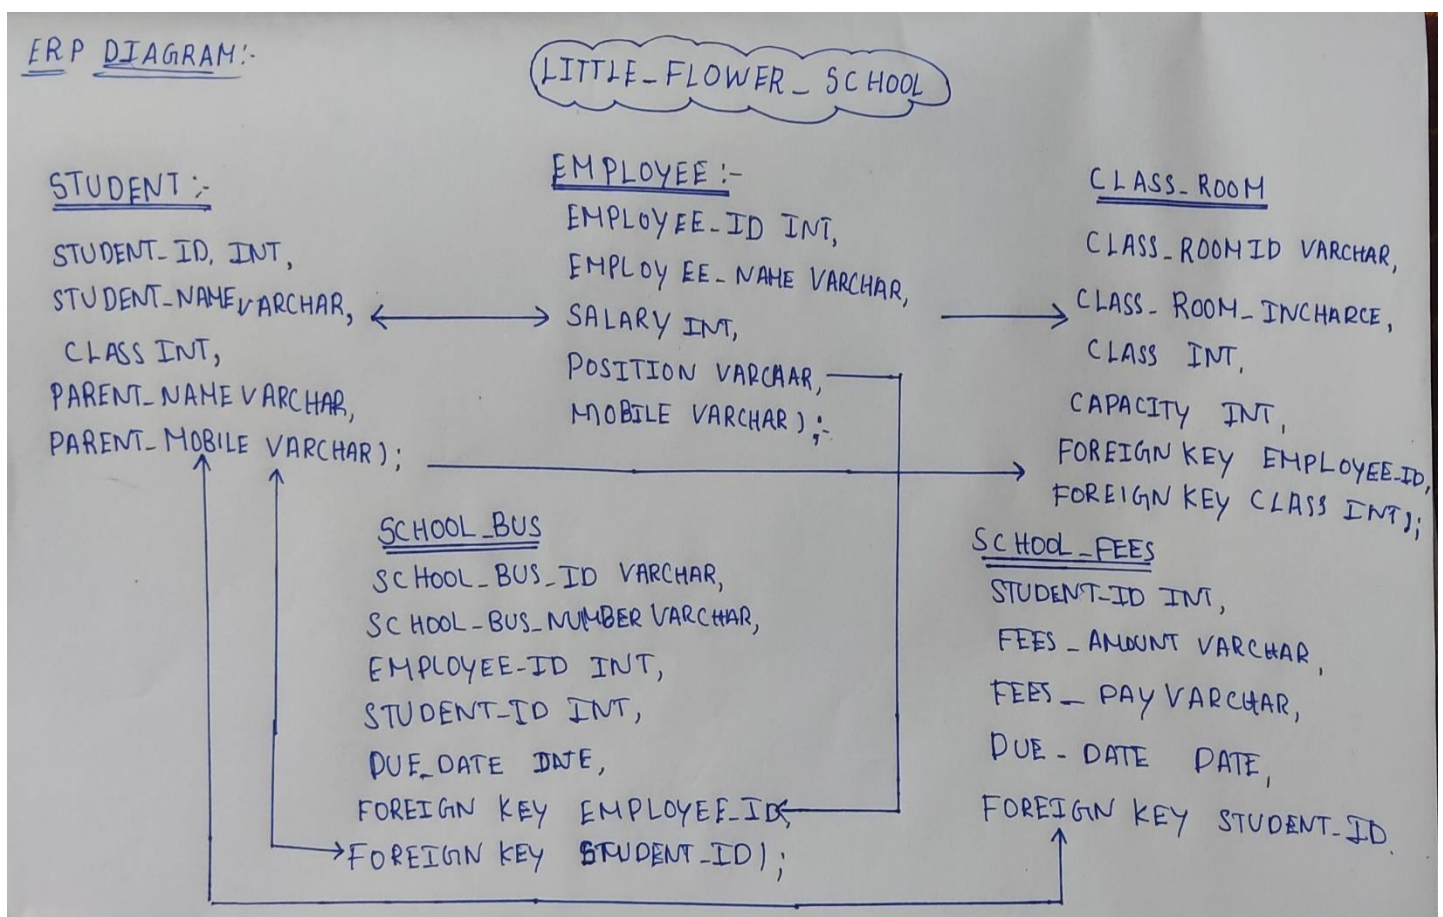 ERP DIAGRAM:-
LITTLE_FLOWER_SCHOOL
STUDENT:-
STUDENT_ID, INT,
STUDENT_NAME VARCHAR,
CLASS INT,
PARENT_NAME VARCHAR,
PARENT_MOBILE VARCHAR);
EMPLOYEE:-
EMPLOYEE_ID INT,
EMPLOYEE_NAME VARCHAR,
SALARY INT,
POSITION VARCHAR,
MOBILE VARCHAR);-
CLASS_ROOM
CLASS_ROOMID VARCHAR,
CLASS_ROOM_INCHARCE,
CLASS INT,
CAPACITY INT,
FOREIGN KEY EMPLOYEE_ID,
FOREIGN KEY CLASS INT);
SCHOOL_BUS
SCHOOL_BUS_ID VARCHAR,
SCHOOL_BUS_NUMBER VARCHAR,
EMPLOYEE_ID INT,
STUDENT_ID INT,
DUE_DATE DATE,
FOREIGN KEY EMPLOYEE_ID,
FOREIGN KEY STUDENT_ID);
SCHOOL_FEES
STUDENT_ID INT,
FEES_AMOUNT VARCHAR,
FEES_PAY VARCHAR,
DUE_DATE DATE,
FOREIGN KEY STUDENT_ID.